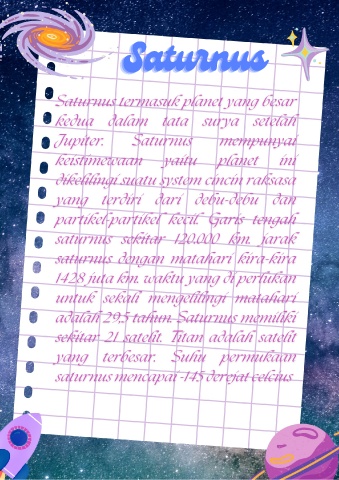 Saturnus
Saturnus termasuk planet yang besar
kedua dalam tata surya setelah
Jupiter. Saturnus mempunyai
keistimewaan yaitu planet ini
dikelilingi suatu system cincin raksasa
yang terdiri dari debu-debu dan
partikel-partikel kecil. Garis tengah
saturnus sekitar 120.000 km. jarak
saturnus dengan matahari kira-kira
1428 juta km. waktu yang di perlukan
untuk sekali mengelilingi matahari
adalah 29,5 tahun. Saturnus memiliki
sekitar 21 satelit. Titan adalah satelit
yang terbesar. Suhu permukaan
saturnus mencapai -145 derajat celcius.